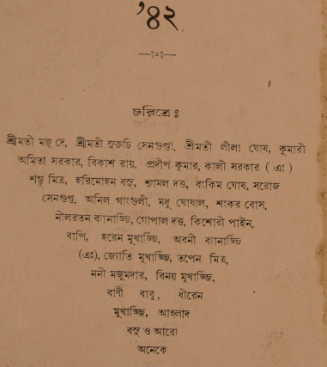 '৪২
—:০:—
চরিত্রে ঃ
শ্রীমতী মঞ্জু দে, শ্রীমতী সুরুচি সেনগুপ্তা, শ্রীমতী লীলা ঘোষ, কুমারী
অমিতা সরকার, বিকাশ রায়, প্রদীপ কুমার, কালী সরকার ( এঃ )
শম্ভু মিত্র, হরিমোহন বসু, শ্যামল দত্ত, বংকিম ঘোষ, সরোজ
সেনগুপ্ত, অনিল গাংগুলী, মধু ঘোষাল, শংকর বোস,
নীলরতন ব্যানার্জ্জি, গোপাল দত্ত, কিশোরী পাইন,
বাপি, হরেন মুখার্জ্জি, অবনী ব্যানার্জ্জি
(এঃ), জ্যোতি মুখার্জ্জি, তপেন মিত্র,
ননী মজুমদার, বিনয় মুখার্জ্জি,
বাণী বাবু, ধীরেন
মুখার্জ্জি, আহ্লাদ
বসু ও আরো
অনেকে